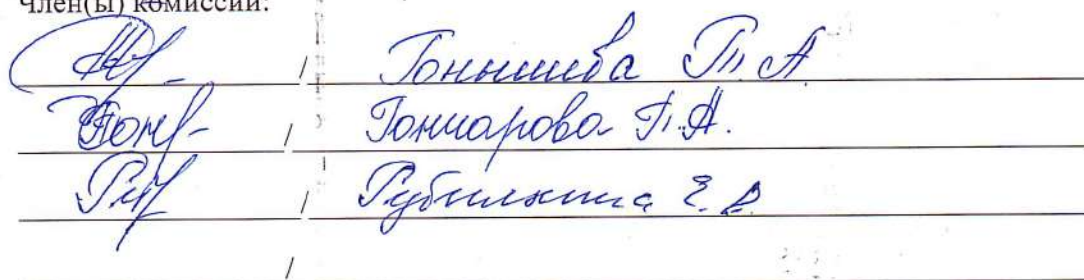 Член(ы) комиссии:
/ Гонышева Т. А
/ Гончарова Т. А.
/ Рубилкина Е. В
/